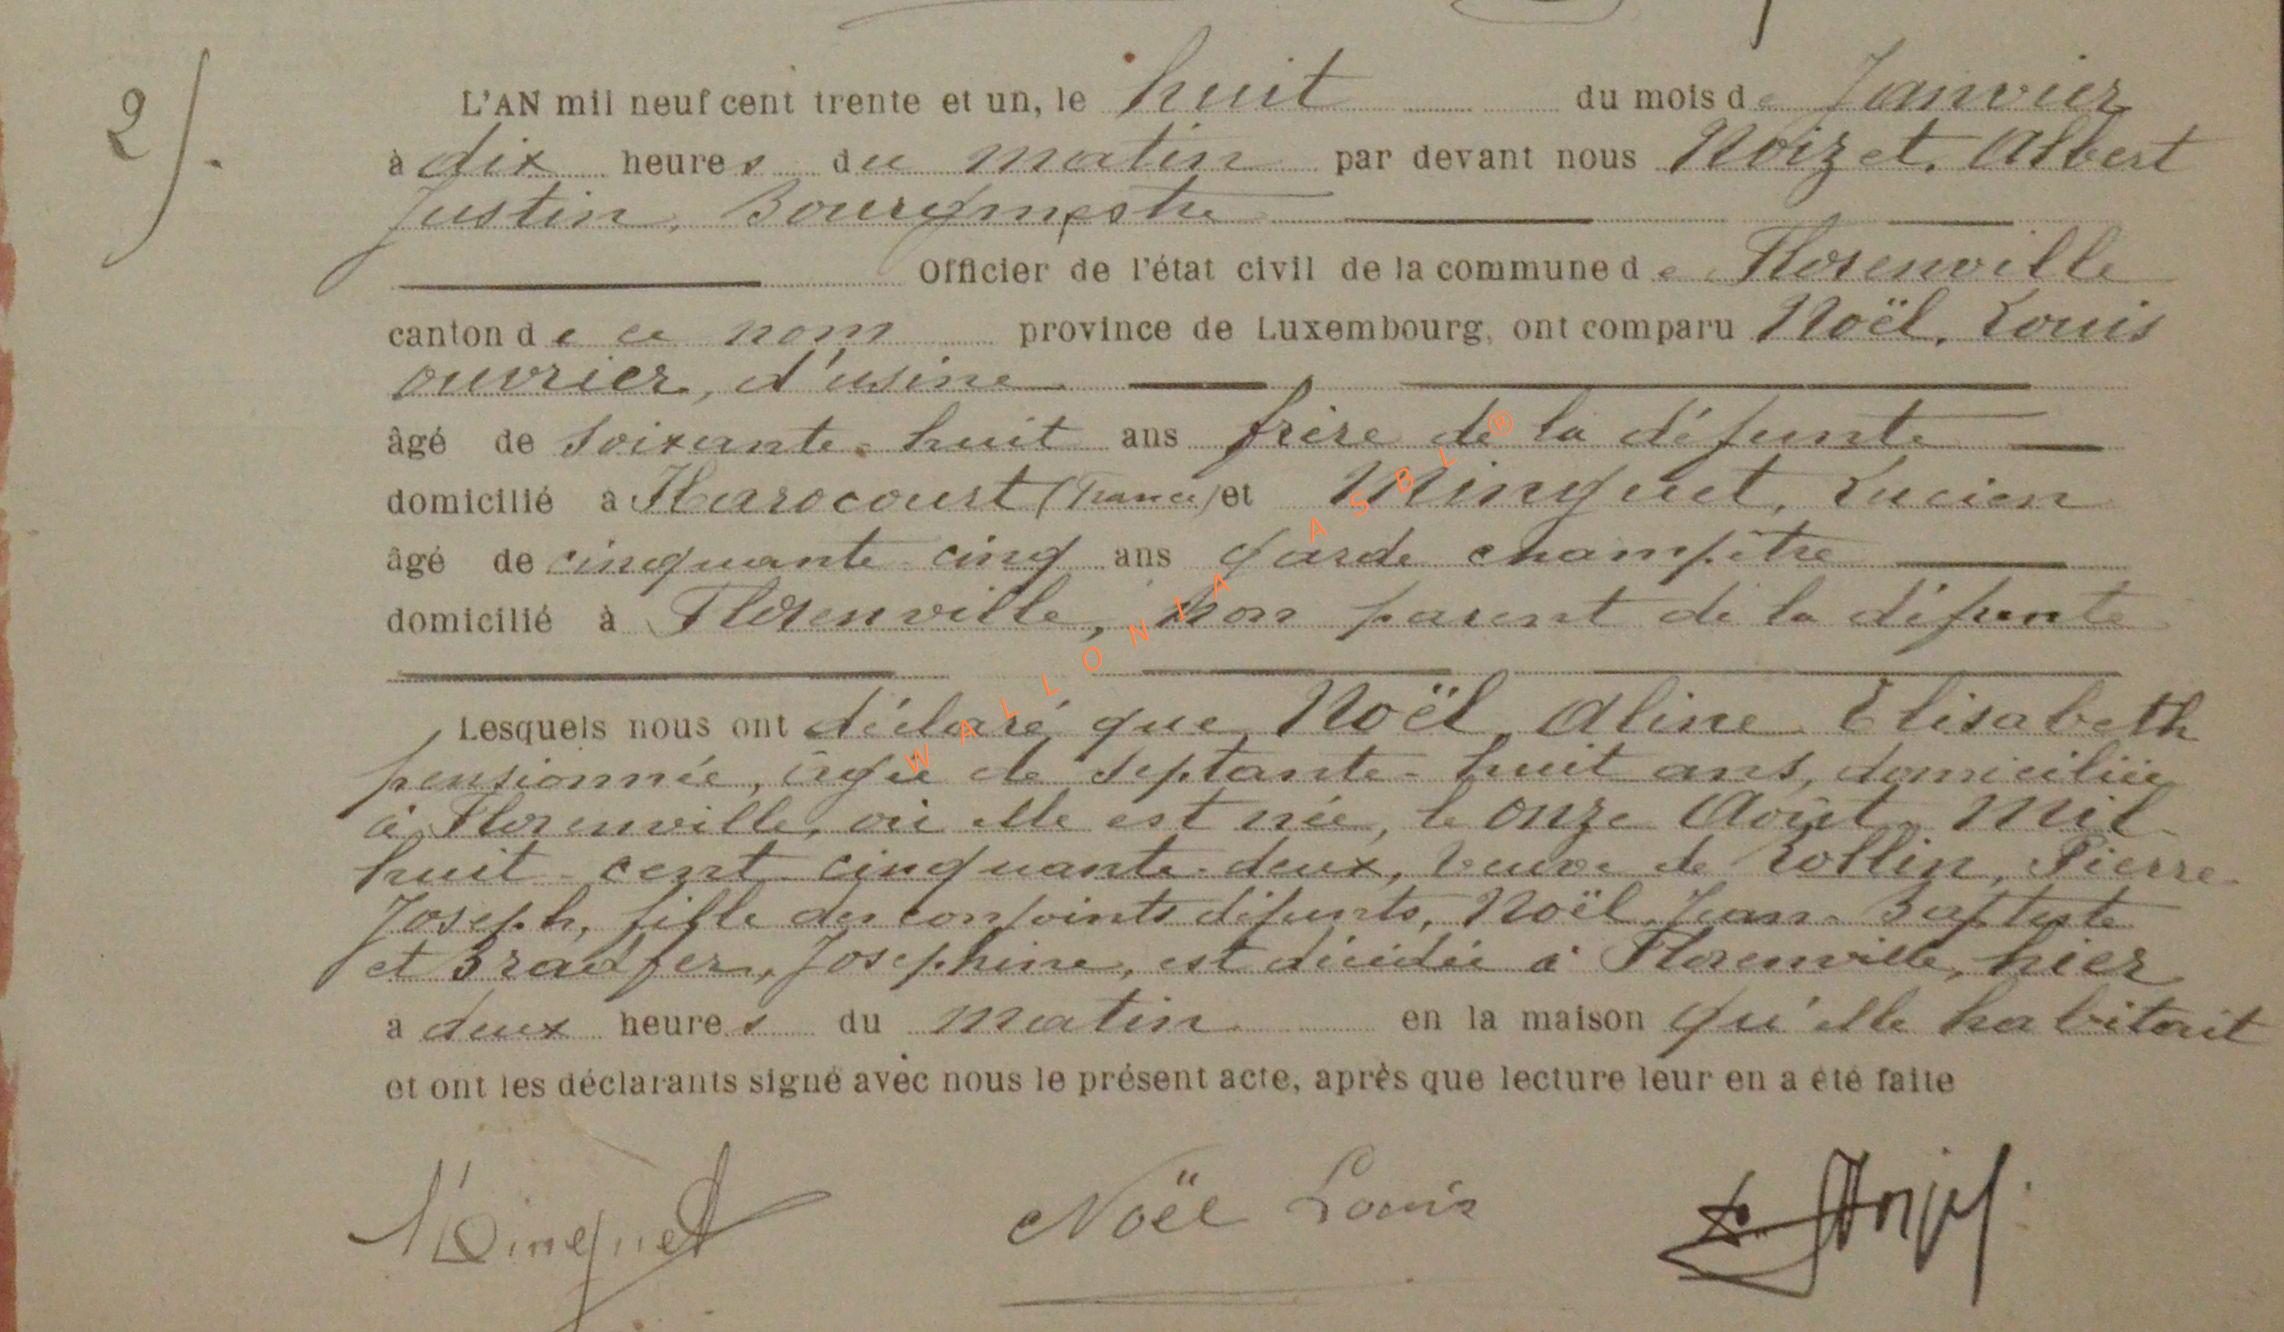 2).
L'AN mil neuf cent trente et un, le huit du mois de Janvier
à dix heures du matin par devant nous Noizet, Albert
Justin, Bourgmestre
Officier de l'état civil de la commune de Florenville
canton de ce nom province de Luxembourg, ont comparu Noël, Louis
ouvrier, d'usine
âgé de soixante-huit ans frère de la défunte
domicilié à Harocourt (France) et Minguet, Lucien
âgé de cinquante cinq ans garde champêtre
domicilié à Florenville, non parent de la défunte
Lesquels nous ont déclaré que Noël, Aline Elisabeth
pensionnée, âgée de septante-huit ans, domiciliée
à Florenville, où elle est née, le onze Août Mil
huit-cent-cinquante-deux, veuve de Rollin, Pierre
Joseph, fille des conjoints défunts, Noël, Jean-Baptiste
et Bradfer, Josephine, est décédée à Florenville, hier
à deux heures du matin en la maison qu'elle habitait
et ont les déclarants signé avec nous le présent acte, après que lecture leur en a été faite
Minguet Noël Louis
WALLONIA ASBL ®